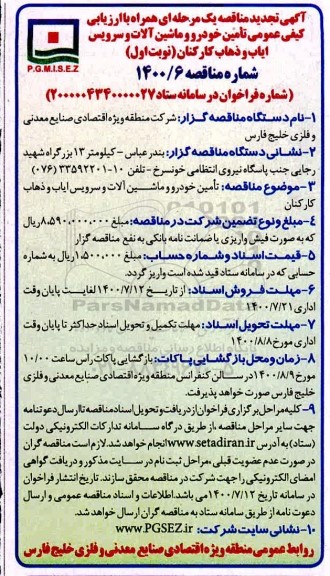 آگهی تجدید مناقصه یک مرحله ای همراه با ارزیابی
کیفی عمومی تأمین خودرو و ماشین آلات و سرویس
ایاب و ذهاب کارکنان (نوبت اول)
P.G.M.I.S.E.Z
شماره مناقصه ۱۴۰۰/۶
(شماره فراخوان در سامانه ستاد ۲۰۰۰۰۰۴۳۴۰۰۰۰۰۲۷)
۱-نام دستگاه مناقصه گزار: شرکت منطقه ویژه اقتصادی صنایع معدنی
و فلزی خلیج فارس
۲-نشانی دستگاه مناقصه گزار: بندرعباس - کیلومتر ۱۳ بزرگراه شهید
رجایی جنب پاسگاه نیروی انتظامی خونسرخ - تلفن ۱۰-۳۳۵۹۲۲۰۱ (۰۷۶)
۳-موضوع مناقصه: تأمین خودرو و ماشین آلات و سرویس ایاب و ذهاب
کارکنان
۴-مبلغ و نوع تضمین شرکت در مناقصه: مبلغ ۸,۵۹۰,۰۰۰,۰۰۰ ریال
که به صورت فیش واریزی یا ضمانت نامه بانکی به نفع مناقصه گزار
۵-قیمت اسناد و شماره حساب: مبلغ ۱,۵۰۰,۰۰۰ ریال به شماره
حسابی که در سامانه ستاد قید شده است واریز گردد.
۶-مهلت فروش اسناد: از تاریخ ۱۴۰۰/۷/۱۲ لغایت پایان وقت
اداری ۱۴۰۰/۷/۲۱
۷-مهلت تحویل اسناد: مهلت تکمیل و تحویل اسناد حداکثر تا پایان وقت
اداری مورخ ۱۴۰۰/۸/۸
۸-زمان و محل بازگشایی پاکات: بازگشایی پاکات راس ساعت ۱۰/۰۰
مورخ ۱۴۰۰/۸/۹ در سالن کنفرانس منطقه ویژه اقتصادی صنایع معدنی و فلزی
خلیج فارس صورت خواهد پذیرفت.
۹-کلیه مراحل برگزاری فراخوان از دریافت و تحویل اسناد مناقصه تا ارسال دعوتنامه
جهت سایر مراحل مناقصه، از طریق درگاه سامانه تدارکات الکترونیکی دولت
(ستاد) به آدرس www.setadiran.ir انجام خواهد شد. لازم است مناقصه گران
در صورت عدم عضویت قبلی، مراحل ثبت نام در سایت مذکور و دریافت گواهی
امضای الکترونیکی را جهت شرکت در مناقصه محقق سازند. تاریخ انتشار فراخوان
در سامانه تاریخ ۱۴۰۰/۷/۱۲ می باشد. اطلاعات و اسناد مناقصه عمومی و ارسال
دعوت نامه از طریق سامانه ستاد به مناقصه گران ارسال خواهد شد.
۱۰-نشانی سایت شرکت: www.PGSEZ.ir
روابط عمومی منطقه ویژه اقتصادی صنایع معدنی و فلزی خلیج فارس